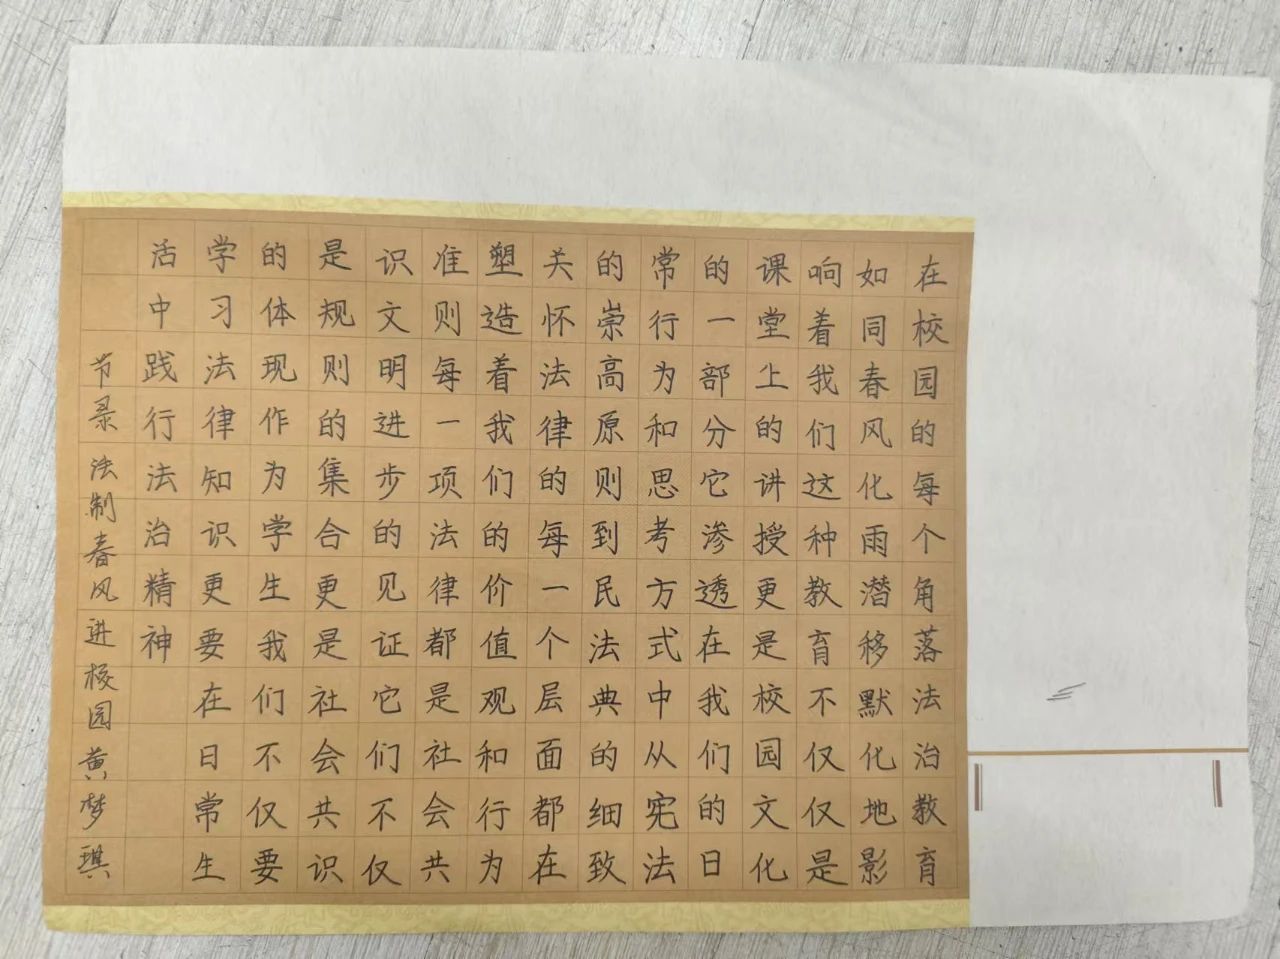 在校园的每个角落法治教育
如同春风化雨潜移默化地影
响着我们这种教育不仅仅是
课堂上的讲授更是校园文化
的一部分它渗透在我们的日
常行为和思考方式中从宪法
的崇高原则到民法典的细致
关怀法律的每一个层面都在
塑造着我们的价值观和行为
准则每一项法律都是社会共
识文明进步的见证它们不仅
是规则的集合更是社会共识
的体现作为学生我们不仅要
学习法律知识更要在日常生
活中践行法治精神
节录法制春风进校园黄梦琪